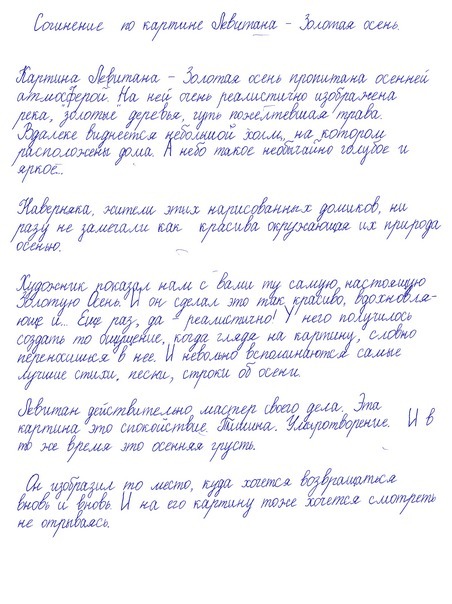 Сочинение по картине Левитана - Золотая осень.
Картина Левитана - Золотая осень пропитана осенней
атмосферой. На ней очень реалистично изображена
река, золотые деревья, чуть пожелтевшая трава.
Вдалеке виднеется небольшой холм, на котором
расположены дома. А небо такое необычайно голубое и
яркое...
Наверняка, жители этих нарисованных домиков, ни
разу не замечали как красива окружающая их природа
осенью.
Художник показал нам с вами ту самую, настоящую
Золотую Осень. И он сделал это так красиво, вдохновля-
юще и... Еще раз, да - реалистично! У него получилось
создать то ощущение, когда глядя на картину, словно
переносишься в нее. И невольно вспоминаются самые
лучшие стихи, песни, строки об осени.
Левитан действительно мастер своего дела. Эта
картина это спокойствие. Тишина. Умиротворение. И в
то же время это осенняя грусть.
Он изобразил то место, куда хочется возвращаться
вновь и вновь. И на его картину тоже хочется смотреть
не отрываясь.